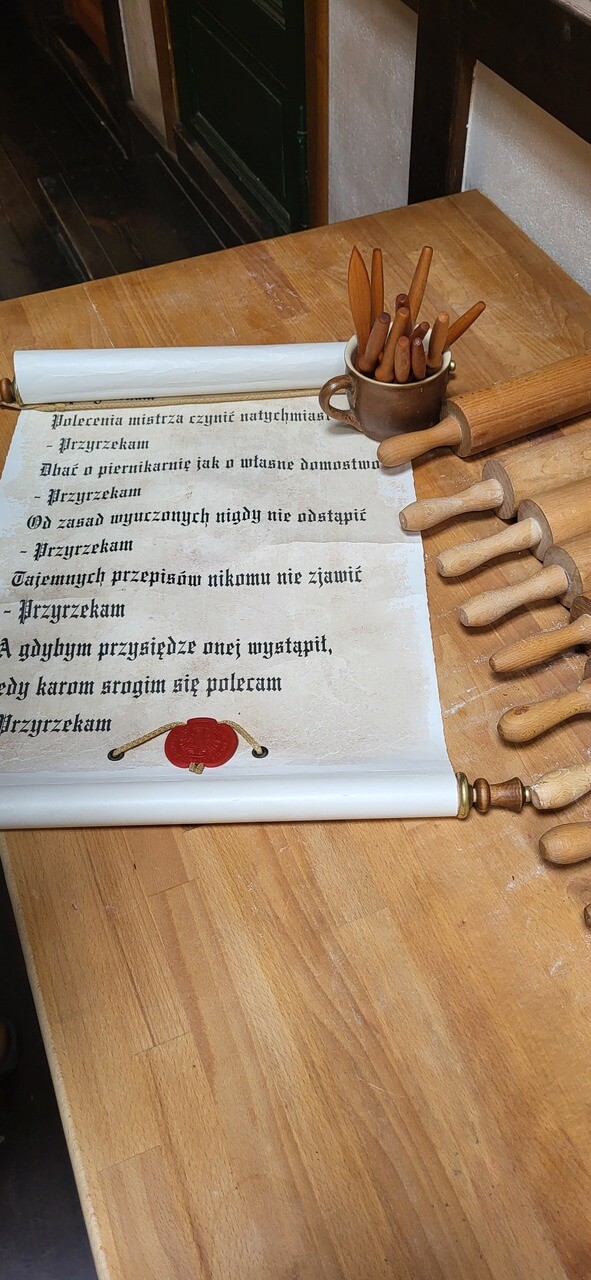 Polecenia mistrza czynić natychmiast
- Przyrzekam
Dbać o piernikarnię jak o własne domostwo
- Przyrzekam
Od zasad wyuczonych nigdy nie odstąpić
- Przyrzekam
Tajemnych przepisów nikomu nie zjawić
- Przyrzekam
A gdybym przysiędze onej wystąpił,
edy karom srogim się polecam
Przyrzekam